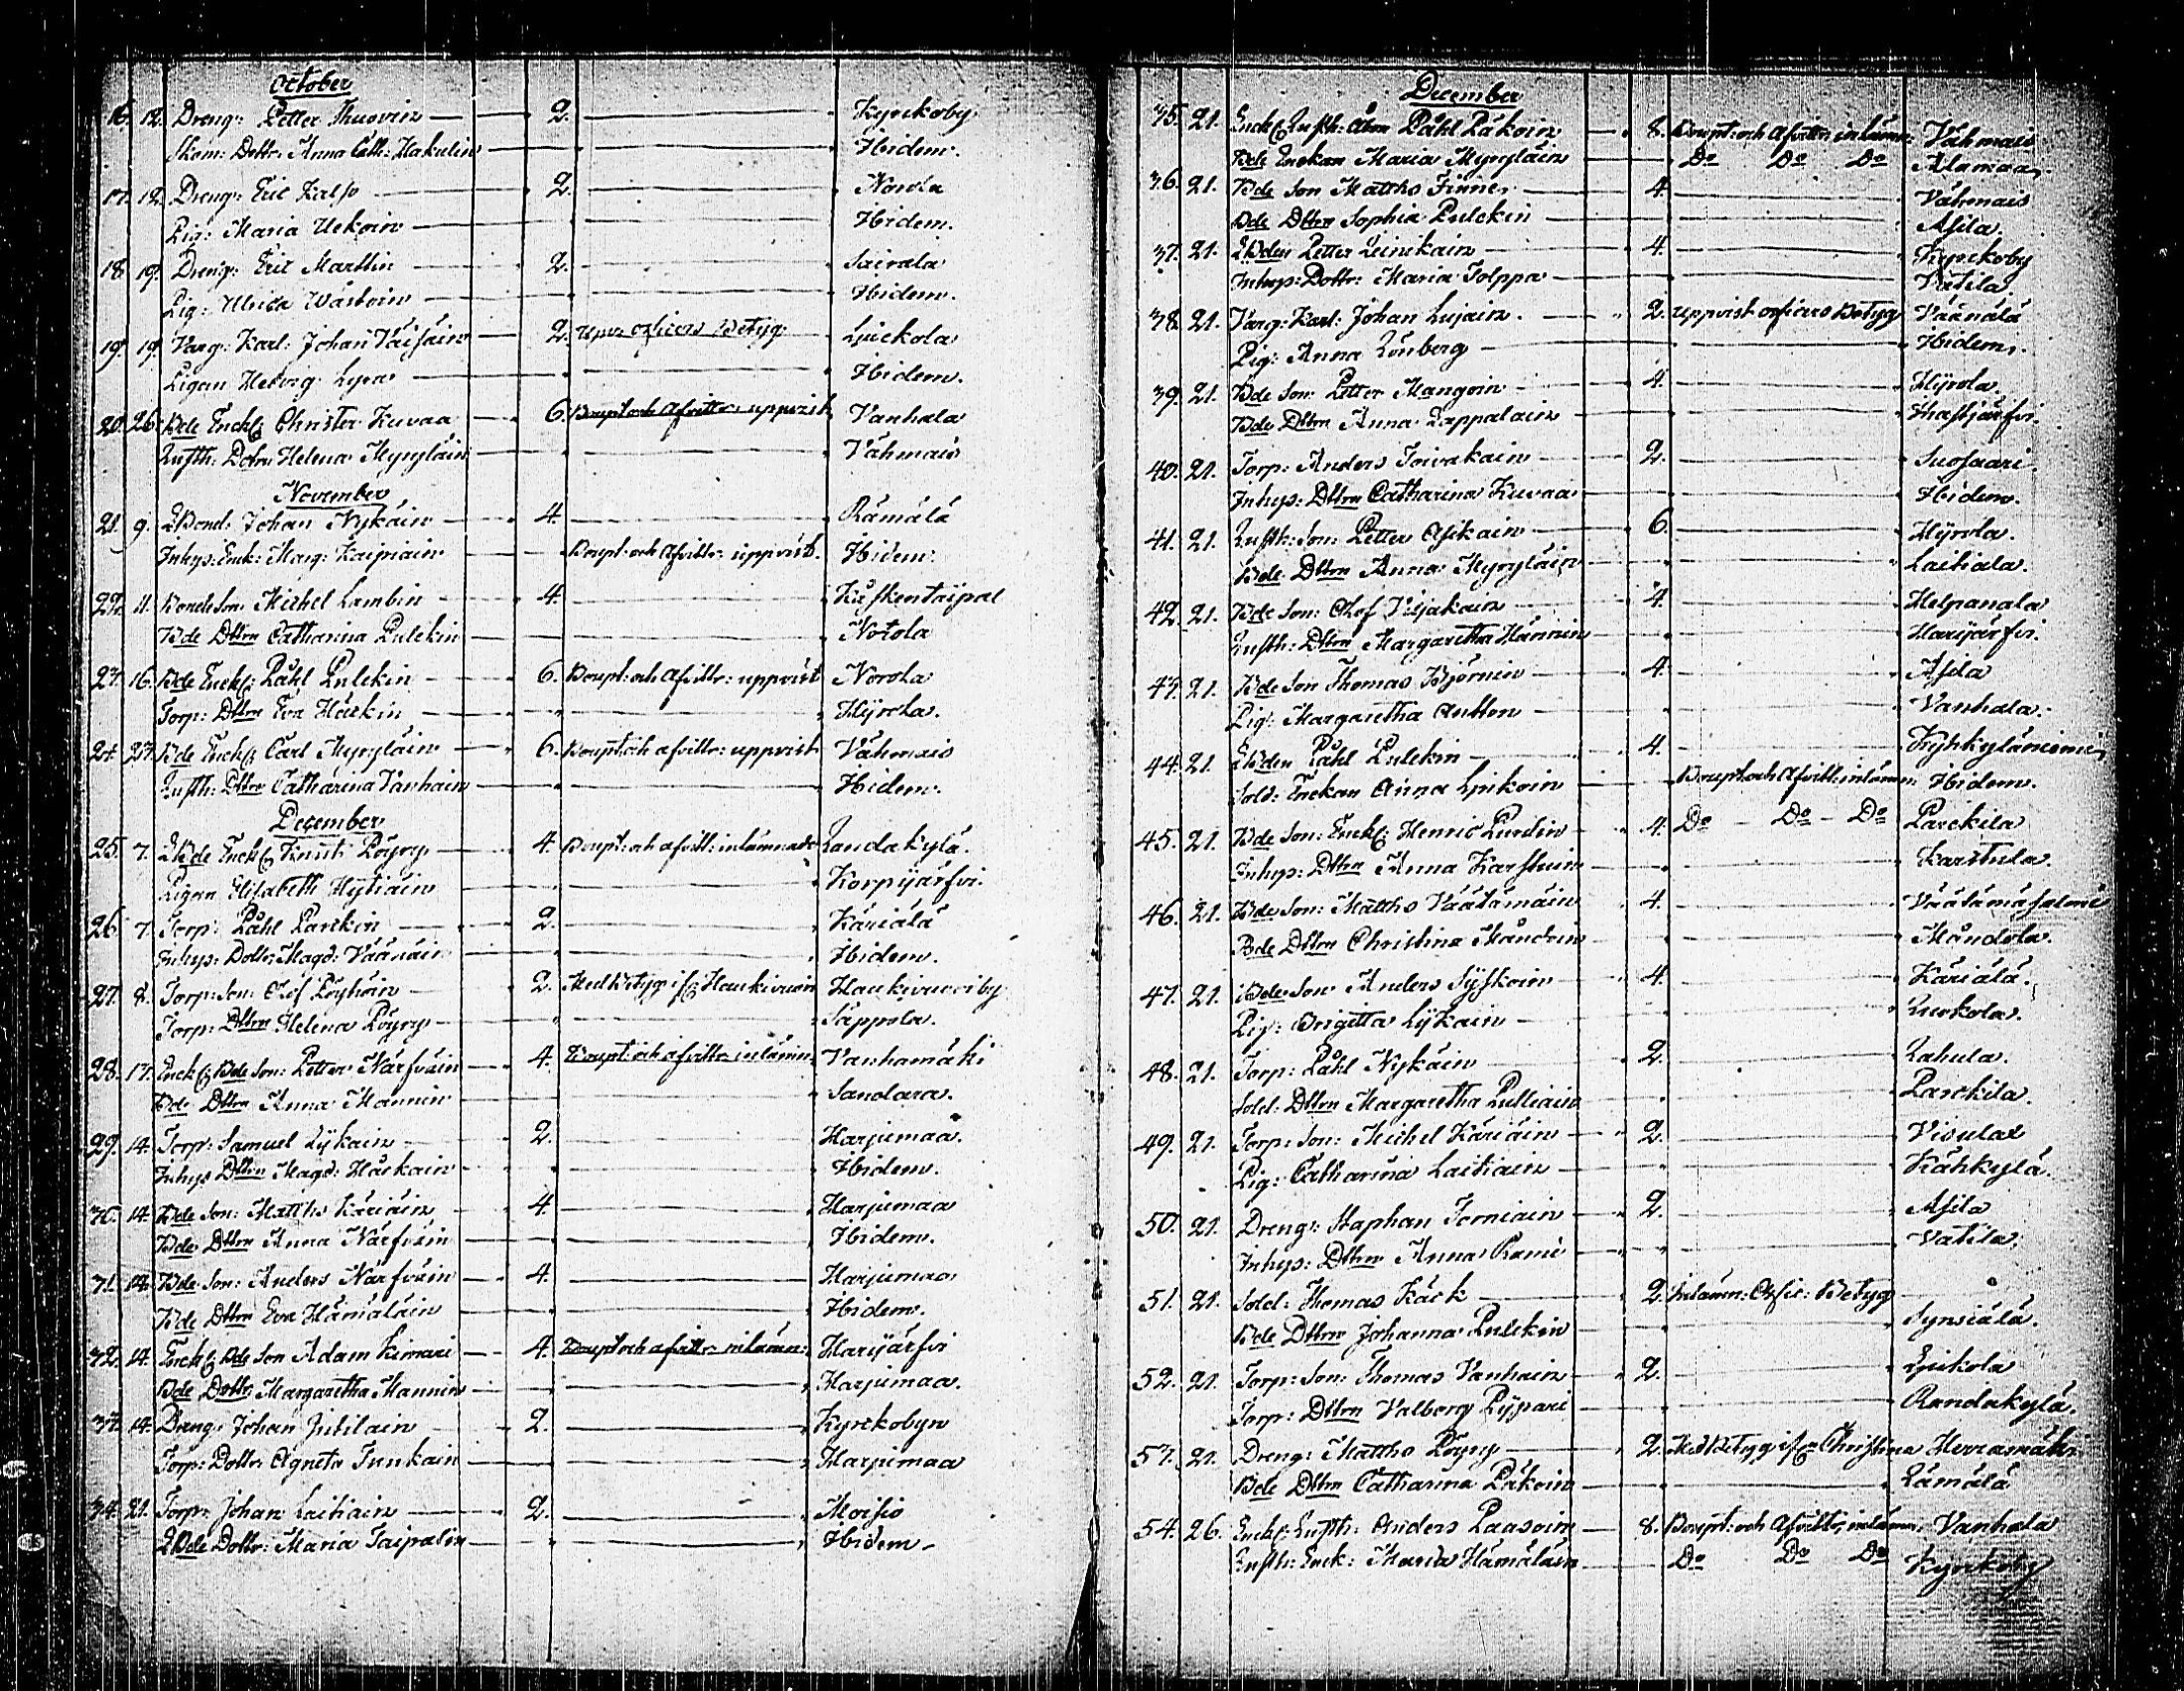 October
16. 12. Dreng: Petter Thuovin 2. Kyrckoby
Skom: Dottr: Anna Cath: Hakulin Ibidem.
17. 12. Dreng: Eric Kalso 2.
Pig: Maria Uekoin Ibidem.
18. 19. Dreng: Eric Marttin 2. Sairala
Pig: Ulrica Ibidem.
19. 19. Varg: Karl: Johan Väisäin 2. Upv: officers Betyg:
Pigan Hedvig Lyra Ibidem.
20. 26. Bde Enckl: Christer Kuvaa 6. Boupt: och Afvittr: uppvist Vanhala
Lufth: Dotrn Helena Myryläin Vähmais
November
21. 9. LBond: Johan Nykäin 4. Rämälä
Inhys: Enk: Marg: Kaipiain Boupt: och Afvittr: uppvist. Ibidem.
22. 11. Bonde Son Michel Lambin 4.
Bde Dttrn Catharina Pulckin Notola
23. 16. Bde Enckl: Påhl Pulckin 6. Boupt: och Afvittr: uppvist Norola
Torp: Dttrn Eva Häckin Hyrola.
24. 23. Bde Enckl: Carl Myryläin 6. Boupt: och afvittr: uppvist Vähmais
Lufth: Dttrn Catharina Vanhain Ibidem.
December
25. 7. LBde Enckl: Knut Pöyry 4. Boupt: och afvitt: inlämnade Randakylä.
Pigan Elisabeth Hytiäin Korpijärfvi.
26. 7. Torp: Påhl Parckin 2. Käriälä
Inhys: Dottr: Magd: Väänäin Ibidem.
27. 8. Torp: Son: Olof Pöyhöin 2. Med Betyg if: Haukivuori Haukivuoriby
Torp: Dttrn Helena Pöyry Säppola.
28. 13. Enckl: Bde Son: Petter Närfväin 4. Boupt: och afvittr: inlämn: Vanhamäki
Bde Dttrn Anna Mannin Sandara.
29. 14. Torp: Samuel Lykain 2. Harjumaa.
Inhys Dttrn Magd: Häckain Ibidem.
30. 14. Bde Son: Matths Käriäin 4. Harjumaa
Bde Dttrn Anna Närfväin Ibidem.
31. 14. Bde Son: Anders Närfväin 4. Harjumaa
Bde Dttrn Eva Hämäläin Ibidem.
32. 14. Enckl: Bde Son Adam Kimari 4. Boupt: och afvittr: inlämn: Harijärfvi
Bde Dottr: Margaretha Mannin Harjumaa.
33. 14. Dreng: Johan Juhilain 2. Kyrckobyn
Torp: Dottr: Agneta Tunkain Harjumaa
34. 21. Torp: Johan Laitiain 2. Moisio
LBde Dottr: Maria Taipalin Ibidem
December
35. 21. Enckl: Lufth: Åbon Påhl Päkoin 8. Boupt: och Afvittr: inlämn: Vähmais
Bde Enckan Maria Myryläin Do Do Do Alamaa.
36. 21. Bde Son Matths Finne 4. Vähmais
Bde Dttrn Sophia Pulckin Asila.
37. 21. LBden Petter Leinikain 4. Kyrckoby
Inhys: Dottr: Maria Tolppa Vatila
38. 21. Varg: Karl: Johan Lujain 2. uppvist officers Betyg Väänälä
Pig: Anna Lönberg Ibidem.
39. 21. Bde Son: Petter Mangoin 4. Hyrola
Bde Dttrn Anna Lappalain
40. 21. Torp: Anders Toivakain 2. Suosaari.
Inhys: Dttrn Catharina Kuvaa Ibidem.
41. 21. Lufth: Son: Petter Asikain 6. Hyrola.
Bde Dttrn Anna Myryläin Laitiala.
42. 21. Bde Son: Olof Viljakain 4. Helpanala
Lufth: Dttrn Margaretha Hännin Harijärfvi.
43. 21. Bde Son Thomas Björnin 4. Asila
Pig: Margaretha Antton Vanhala.
44. 21. LBden Påhl Pulckin 4.
Sold: Enckan Anna Lyikoin Boupt: och Afvitt: inlämn: Ibidem.
45. 21. Bde Son: Enckl: Henric Purdin 4. Do Do Do Parckila
Inhys: Dttrn Anna Karhuin Karstula.
46. 21. Bde Son: Matths Väätämäin 4. Väätämäsalmi
Bde Dttrn Christina Mändoin Mändölä.
47. 21. Bde Son Anders Syskoin 4. Käriälä.
Pig: Brigitta Lykain
48. 21. Torp: Påhl Nykäin 2. Lahula.
Sold: Dttrn Margaretha Pulliain Parckila.
49. 21. Torp: Son: Michel Käriäin 2. Visulax
Pig: Catharina Laitiain Kähkylä.
50. 21. Dreng: Staphan Torniain 2. Asila
Inhys: Dttrn Anna Rami Vatila.
51. 21. Sold: Thomas Käck 2. Inlämn: Offic: Betyg
Bde Dttrn Johanna Pulckin Synsiälä.
52. 21. Torp: Son: Thomas Vanhain 2.
Torp: Dttrn Valborg Pyypari Randakylä.
53. 21. Dreng: Matths Pöyry 2. Med Betyg if: Christina Herramäki
Bde Dttrn Catharina Päkoin Lämälä
54. 26. Enckl: Lufth: Anders Paasoin 8. Boupt: och Afvittr: inlämn: Vanhala
Lufth: Enck: Maria Hämäläin Do Do Do Kyrckoby